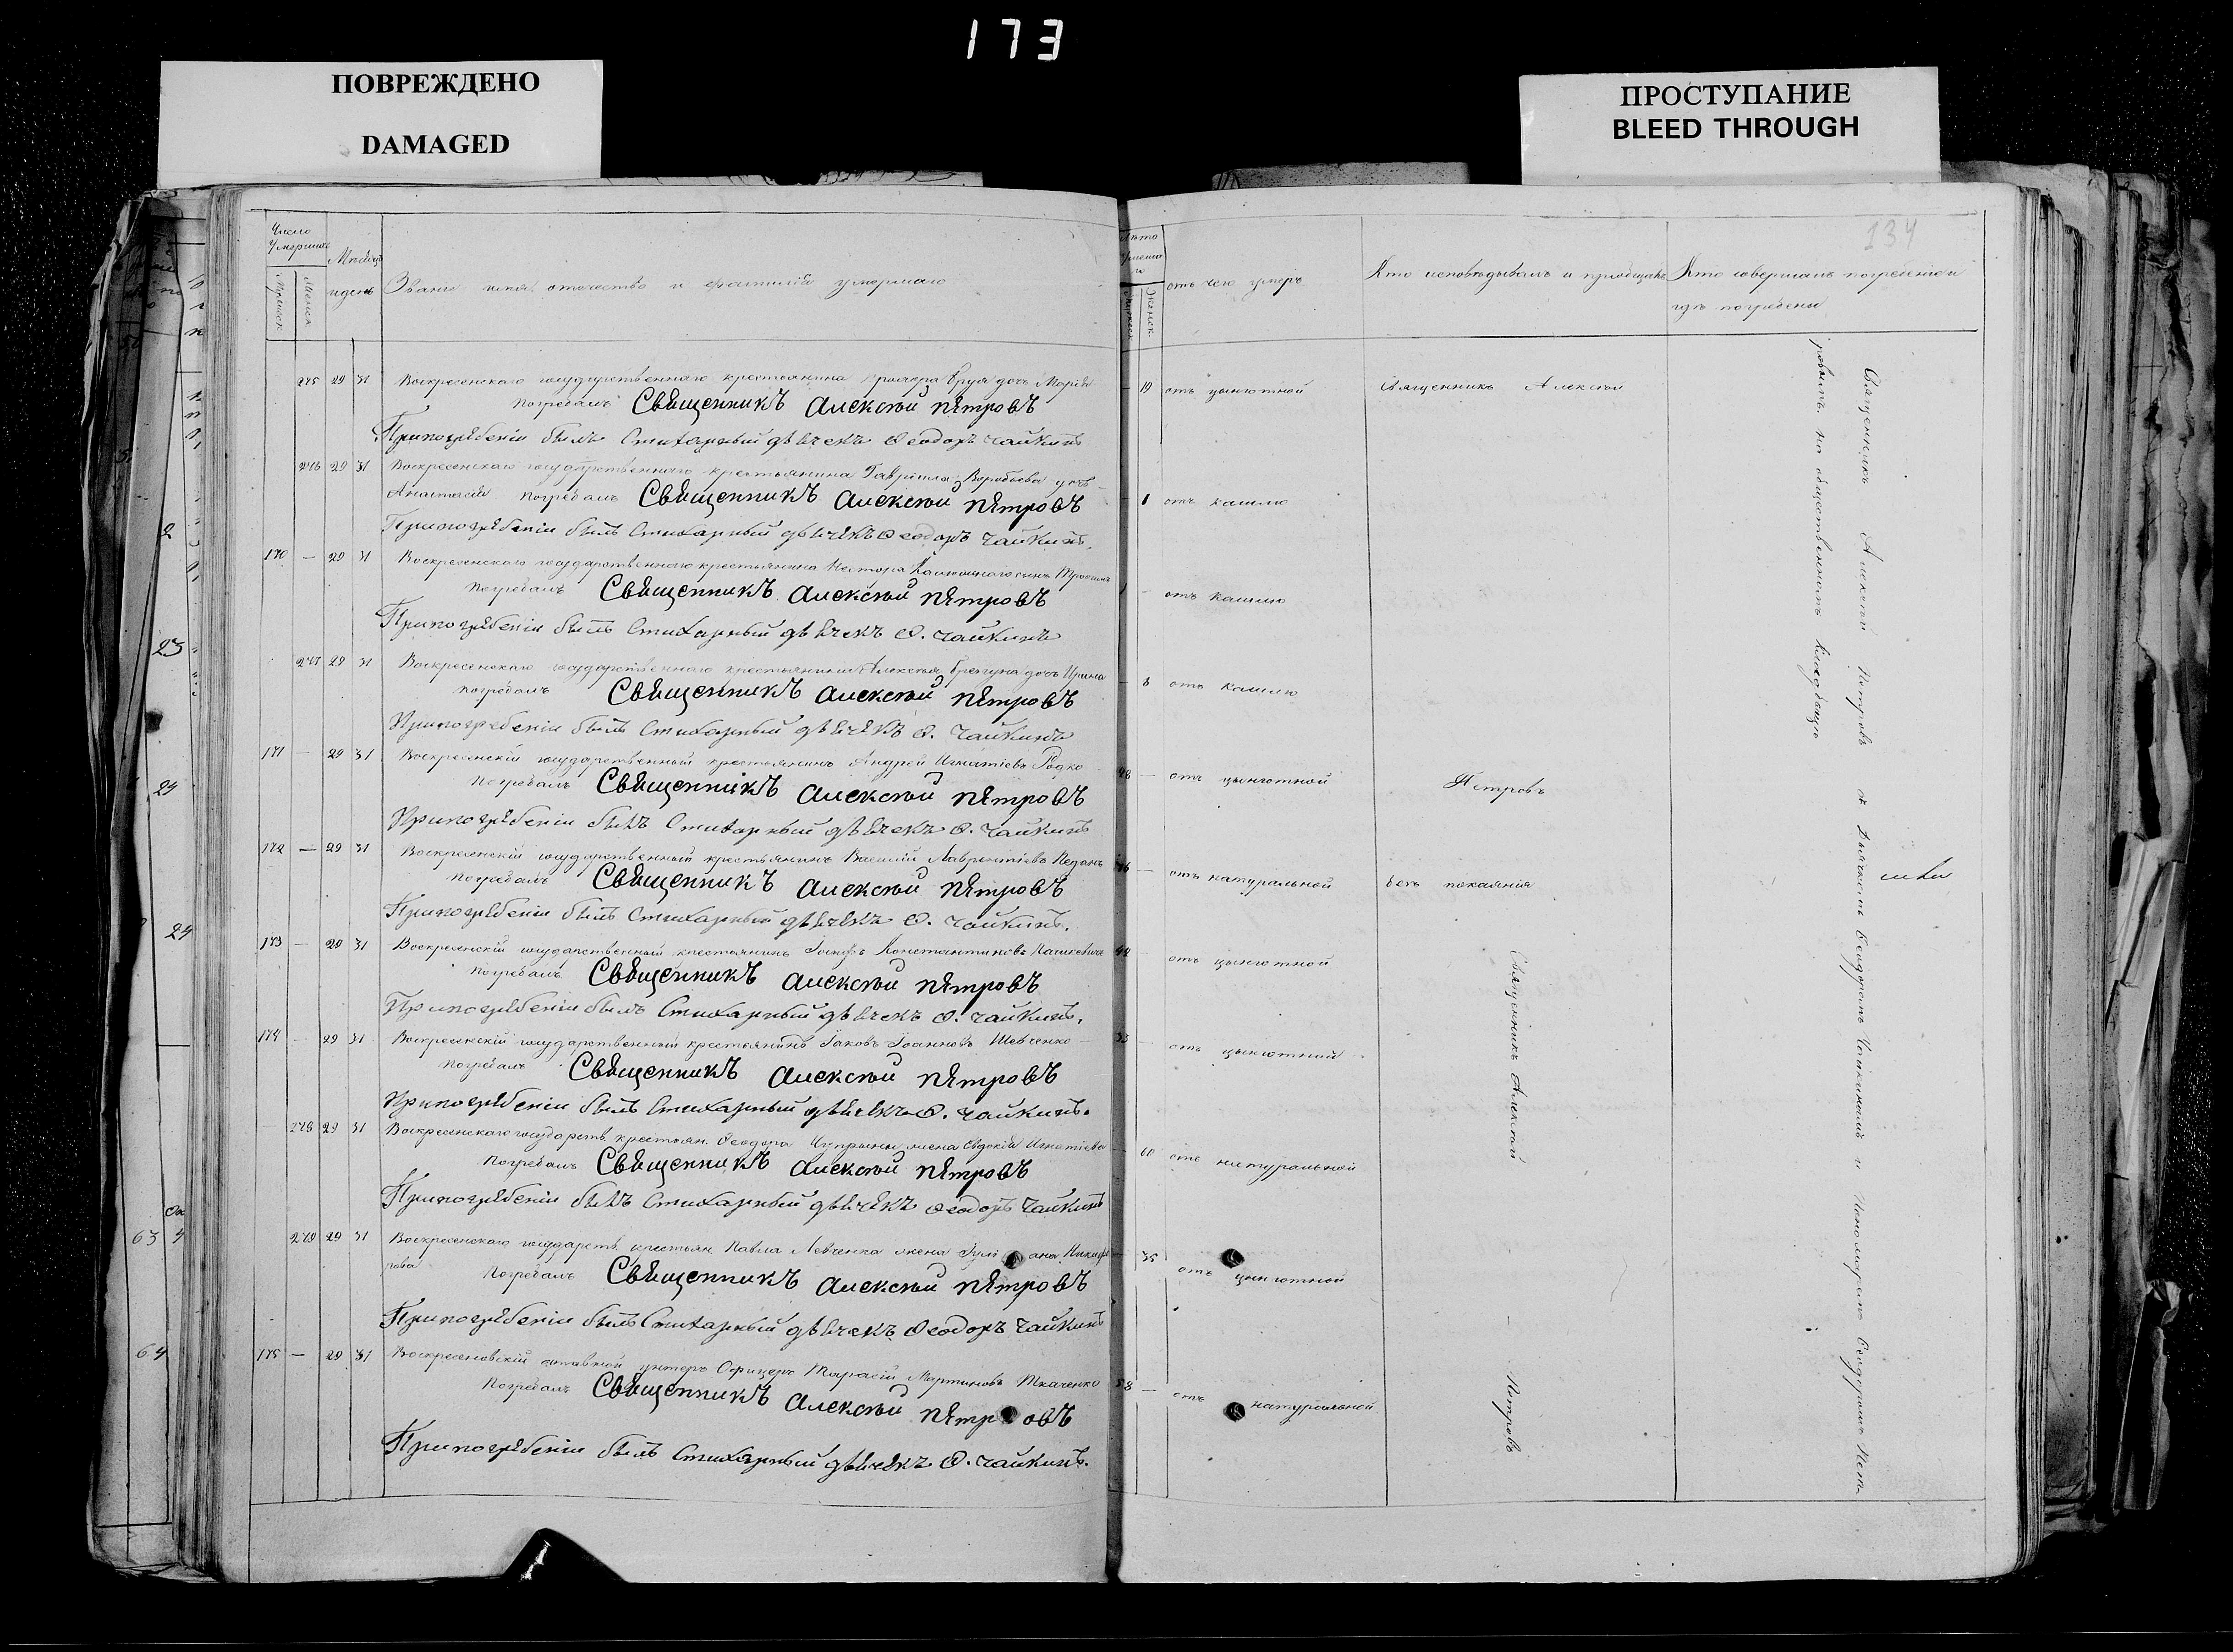 173
ПОВРЕЖДЕНО
DAMAGED
ПРОСТУПАНИЕ
BLEED THROUGH
134
Число
Умерших
Мѣсяцъ
и день
Званіе имя отчество и фамилія умершаго
Лѣта
Женск.
отъ чего умеръ
Кто исповѣдывалъ и пріобщалъ
Кто совершалъ погребеніе и
гдѣ погребены
275 29 31 Воскресенскаго государственнаго крестьянина дочь Марія
19 отъ цынготной
Священникъ Алексѣй
Погребалъ Священникъ Алексѣй Пѣтровъ
При погрѣбеніи былъ Стихарный дьячекъ Ѳеодоръ Чайкинъ
276 29 31 Воскресенскаго государственнаго крестьянина Гавріила Воробьева дочь
Анастасія Погребалъ Священникъ Алексѣй Пѣтровъ
отъ кашлю
При погрѣбеніи былъ Стихарный дьячекъ Ѳеодоръ Чайкинъ.
170 — 29 31 Воскресенскаго государственнаго крестьянина Нестора сынъ Трофимъ
Погребалъ Священникъ Алексѣй Пѣтровъ
отъ кашлю
При погрѣбеніи былъ Стихарный дьячекъ Ѳ. Чайкинъ
277 29 31 Воскресенскаго государственнаго крестьянина Алексѣя дочь Ирина
8 отъ кашлю
Погребалъ Священникъ Алексѣй Пѣтровъ
При погребеніи былъ Стихарный дьячекъ Ѳ. Чайкинъ
171 — 29 31 Воскресенскій государственный крестьянинъ Андрей Игнатіевъ Родко
— отъ цынготной
Петровъ
Погребалъ Священникъ Алексѣй Пѣтровъ
При погрѣбеніи былъ Стихарный дьячекъ Ѳ. Чайкинъ
172 — 29 31 Воскресенскій государственный крестьянинъ Василій Лаврентіевъ
— отъ натуральной
безъ покаянія
Погребалъ Священникъ Алексѣй Пѣтровъ
При погрѣбеніи былъ Стихарный дьячекъ Ѳ. Чайкинъ.
173 — 29 31 Воскресенскій государственный крестьянинъ Іосифъ Константиновъ
отъ цынготной
Погребалъ Священникъ Алексѣй Пѣтровъ
При погрѣбеніи былъ Стихарный дьячекъ Ѳ. Чайкинъ.
174 — 29 31 Воскресенскій государственный крестьянинъ Іаковъ Іоанновъ Шевченко
— отъ цынготной
Погребалъ Священникъ Алексѣй Пѣтровъ
При погрѣбеніи былъ Стихарный дьячекъ Ѳ. Чайкинъ.
278 29 31 Воскресенскаго государств. крестьян. Ѳеодора Чуприны жена Евдокія Игнатіева
60 отъ натуральной
Погребалъ Священникъ Алексѣй Пѣтровъ
При погрѣбеніи былъ Стихарный дьячекъ Ѳеодоръ Чайкинъ
279 29 31 Воскресенскаго государств. крестьян. Павла Левченка жена Іуліана Никифо
рова Погребалъ Священникъ Алексѣй Пѣтровъ
35 отъ цынготной
При погрѣбеніи былъ Стихарный дьячекъ Ѳеодоръ Чайкинъ
175 — 29 31 отставной унтеръ Офицеръ Тарасій Мартиновъ Ткаченко
— отъ натуральной
Погребалъ Священникъ Алексѣй Пѣтровъ
При погрѣбеніи былъ Стихарный дьячекъ Ѳ. Чайкинъ.
Священникъ Алексѣй Петровъ
Священникъ Алексѣй Петровъ съ Дьячкомъ Ѳеодоромъ Чайкинымъ и Пономаремъ Ѳеодоромъ
на общественномъ кладбищѣ
2
23
24
24
63
64